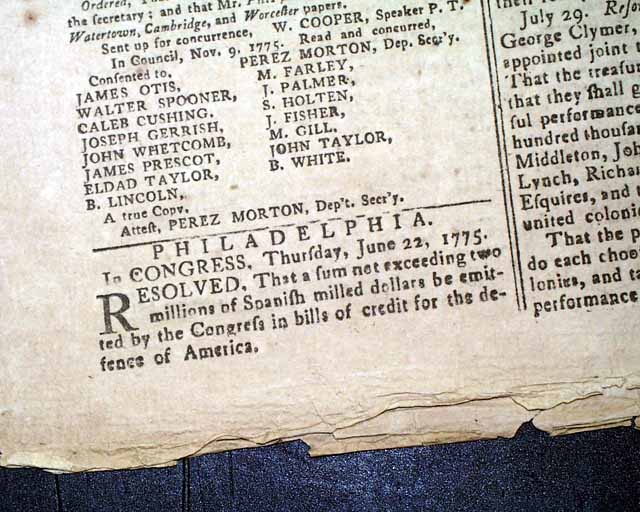 Ordered,
the secretary; and that Mr.
Watertown, Cambridge, and Worcester papers.
Sent up for concurrence, W. COOPER, Speaker P. T.
In Council, Nov. 9, 1775. Read and concurred,
PEREZ MORTON, Dep. Secr'y.
Consented to.
JAMES OTIS,
WALTER SPOONER,
CALEB CUSHING.
JOSEPH GERRISH,
JOHN WHETCOMB,
JAMES PRESCOT,
ELDAD TAYLOR,
B. LINCOLN,
M. FARLEY,
J. PALMER,
S. HOLTEN,
J. FISHER,
M. GILL.
JOHN TAYLOR,
B. WHITE.
A true Copy.
Attest, PEREZ MORTON, Dep't. Secr'y.
PHILADELPHIA.
In CONGRESS, Thursday, June 22, 1775.
RESOLVED, That a ſum not exceeding two
millions of Spaniſh milled dollars be emit-
ted by the Congreſs in bills of credit for the de-
fence of America.
July 29.
George Clymer,
appointed joint
That the treaſur
that they ſhall g
ful performance
hundred thouſan
Middleton, Joh
Lynch, Richar
Eſquires, and
united coloni
That the p
do each choo
lonies, and ta
performance